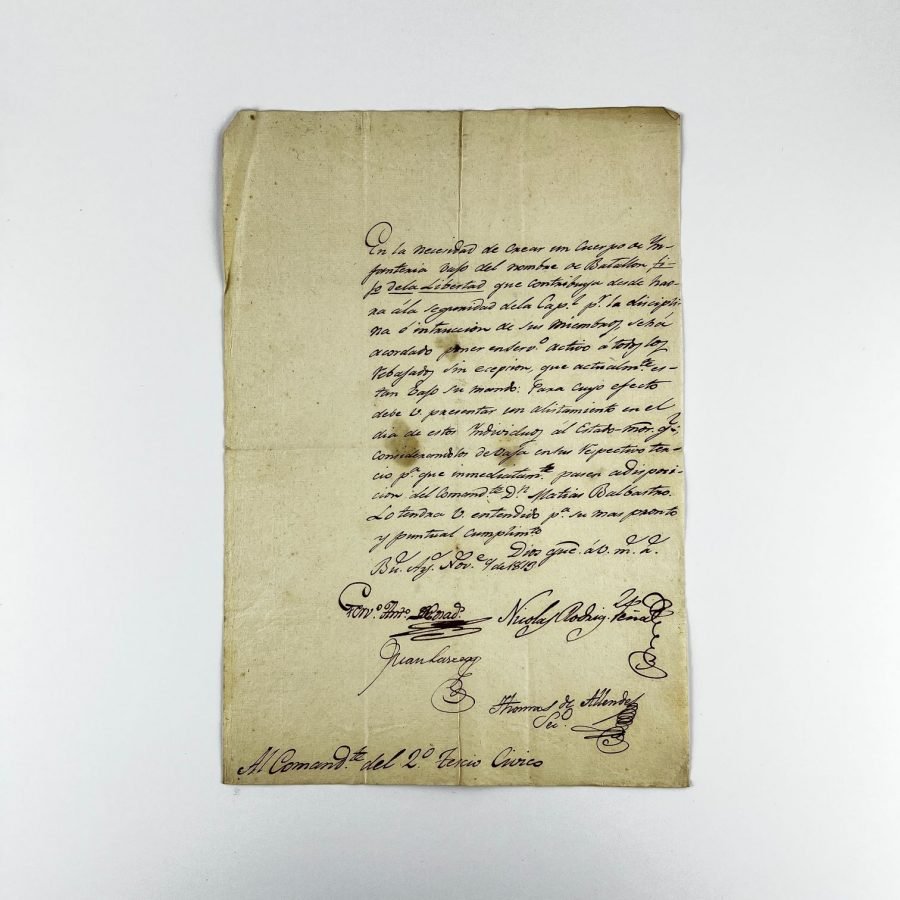 En la necesidad de crear un Cuerpo de In-
fanteria vajo del nombre de Batallon fi-
jo dela Libertad que contribuya desde hao-
ra á la seguridad dela Cap.l p.r la discipli
na é intruccion de sus miembros, se há
acordado poner en serv.o activo a todos los
rebajados sin ecepcion, que actualm.te es-
tan bajo su mando: Para cuyo efecto
debe V. presentar un alistamiento en el
dia de estos Individuos al Estado-mor. G.l,
considerandolos de vaja en sus respectivo ter-
cio p.a que inmediatam.te pasen a disposi-
cion del Comand.te D.n Matias Balbastro.
Lo tendra V. entendido p.a su mas pronto
y puntual cumplim.to
Dios gue. á V. m. a.
Bu. Ay. Nov.e 9 de 1813
Gerv.o Ant.o Posad.
Nicolas Rodrig. Peña
Juan Larrea
Thomas de Allende
Sec.o
Al Comand.te del 2.o Tercio Civico